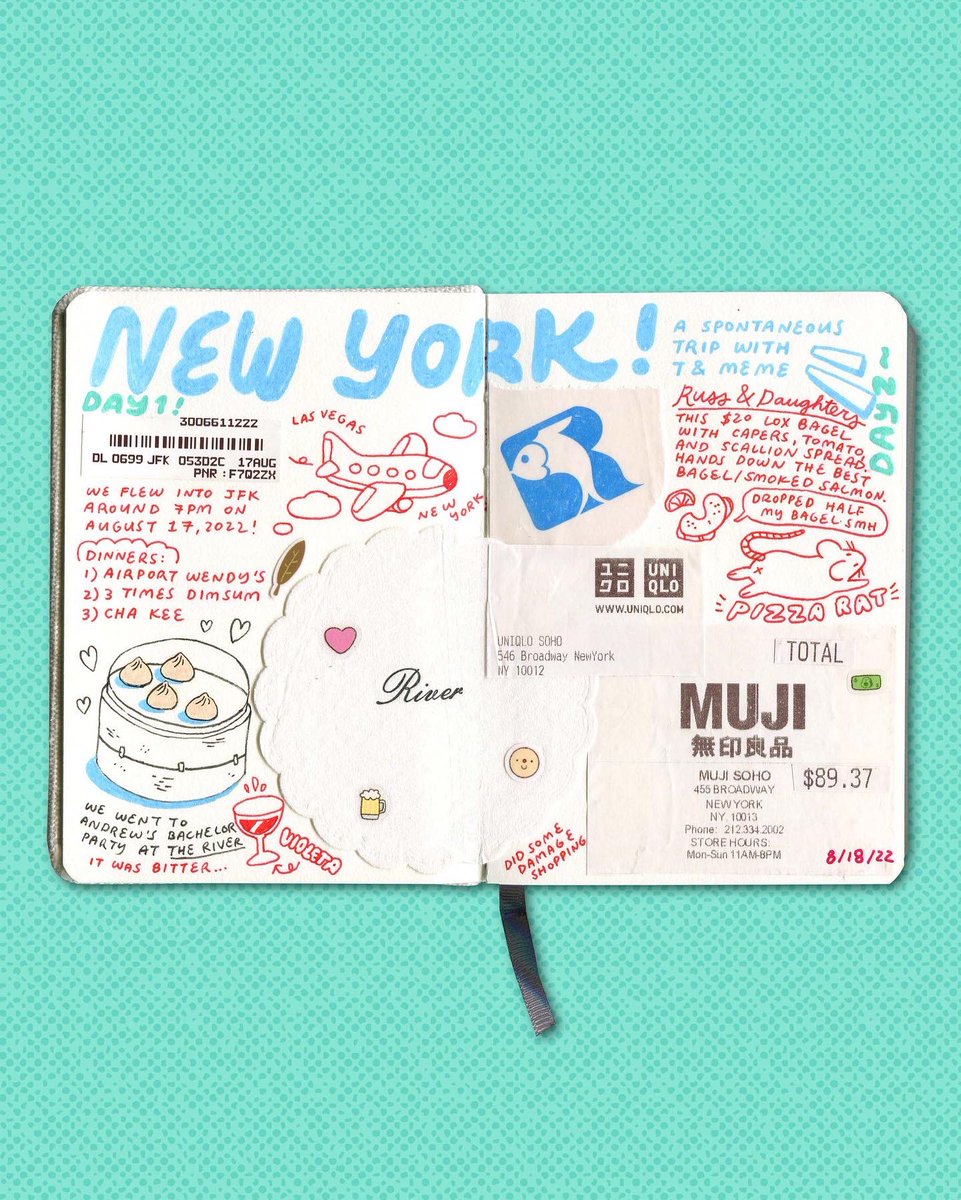 NEW YORK!
A SPONTANEOUS
TRIP WITH
T & MEME
DAY 1!
3006611222
DL 0699 JFK 053D2C 17AUG
PNR : F7QZZX
LAS VEGAS
NEW YORK
WE FLEW INTO JFK
AROUND 7PM ON
AUGUST 17, 2022!
DINNERS:
1) AIRPORT WENDY'S
2) 3 TIMES DIMSUM
3) CHA KEE
WE WENT TO
ANDREW'S BACHELOR
PARTY AT THE RIVER
IT WAS BITTER...
VIOLETA
River
DAY 2~
Russ & Daughters
THIS $20 LOX BAGEL
WITH CAPERS, TOMATO,
AND SCALLION SPREAD.
HANDS DOWN THE BEST
BAGEL/SMOKED SALMON.
DROPPED HALF
MY BAGEL SMH
PIZZA RAT
ユニ
クロ
UNI
QLO
WWW.UNIQLO.COM
UNIQLO SOHO
546 Broadway NewYork
NY 10012
TOTAL
MUJI
無印良品
MUJI SOHO
455 BROADWAY
NEW YORK
NY, 10013
Phone: 212.334.2002
STORE HOURS:
Mon-Sun 11AM-8PM
$89.37
DID SOME
DAMAGE
SHOPPING
8/18/22